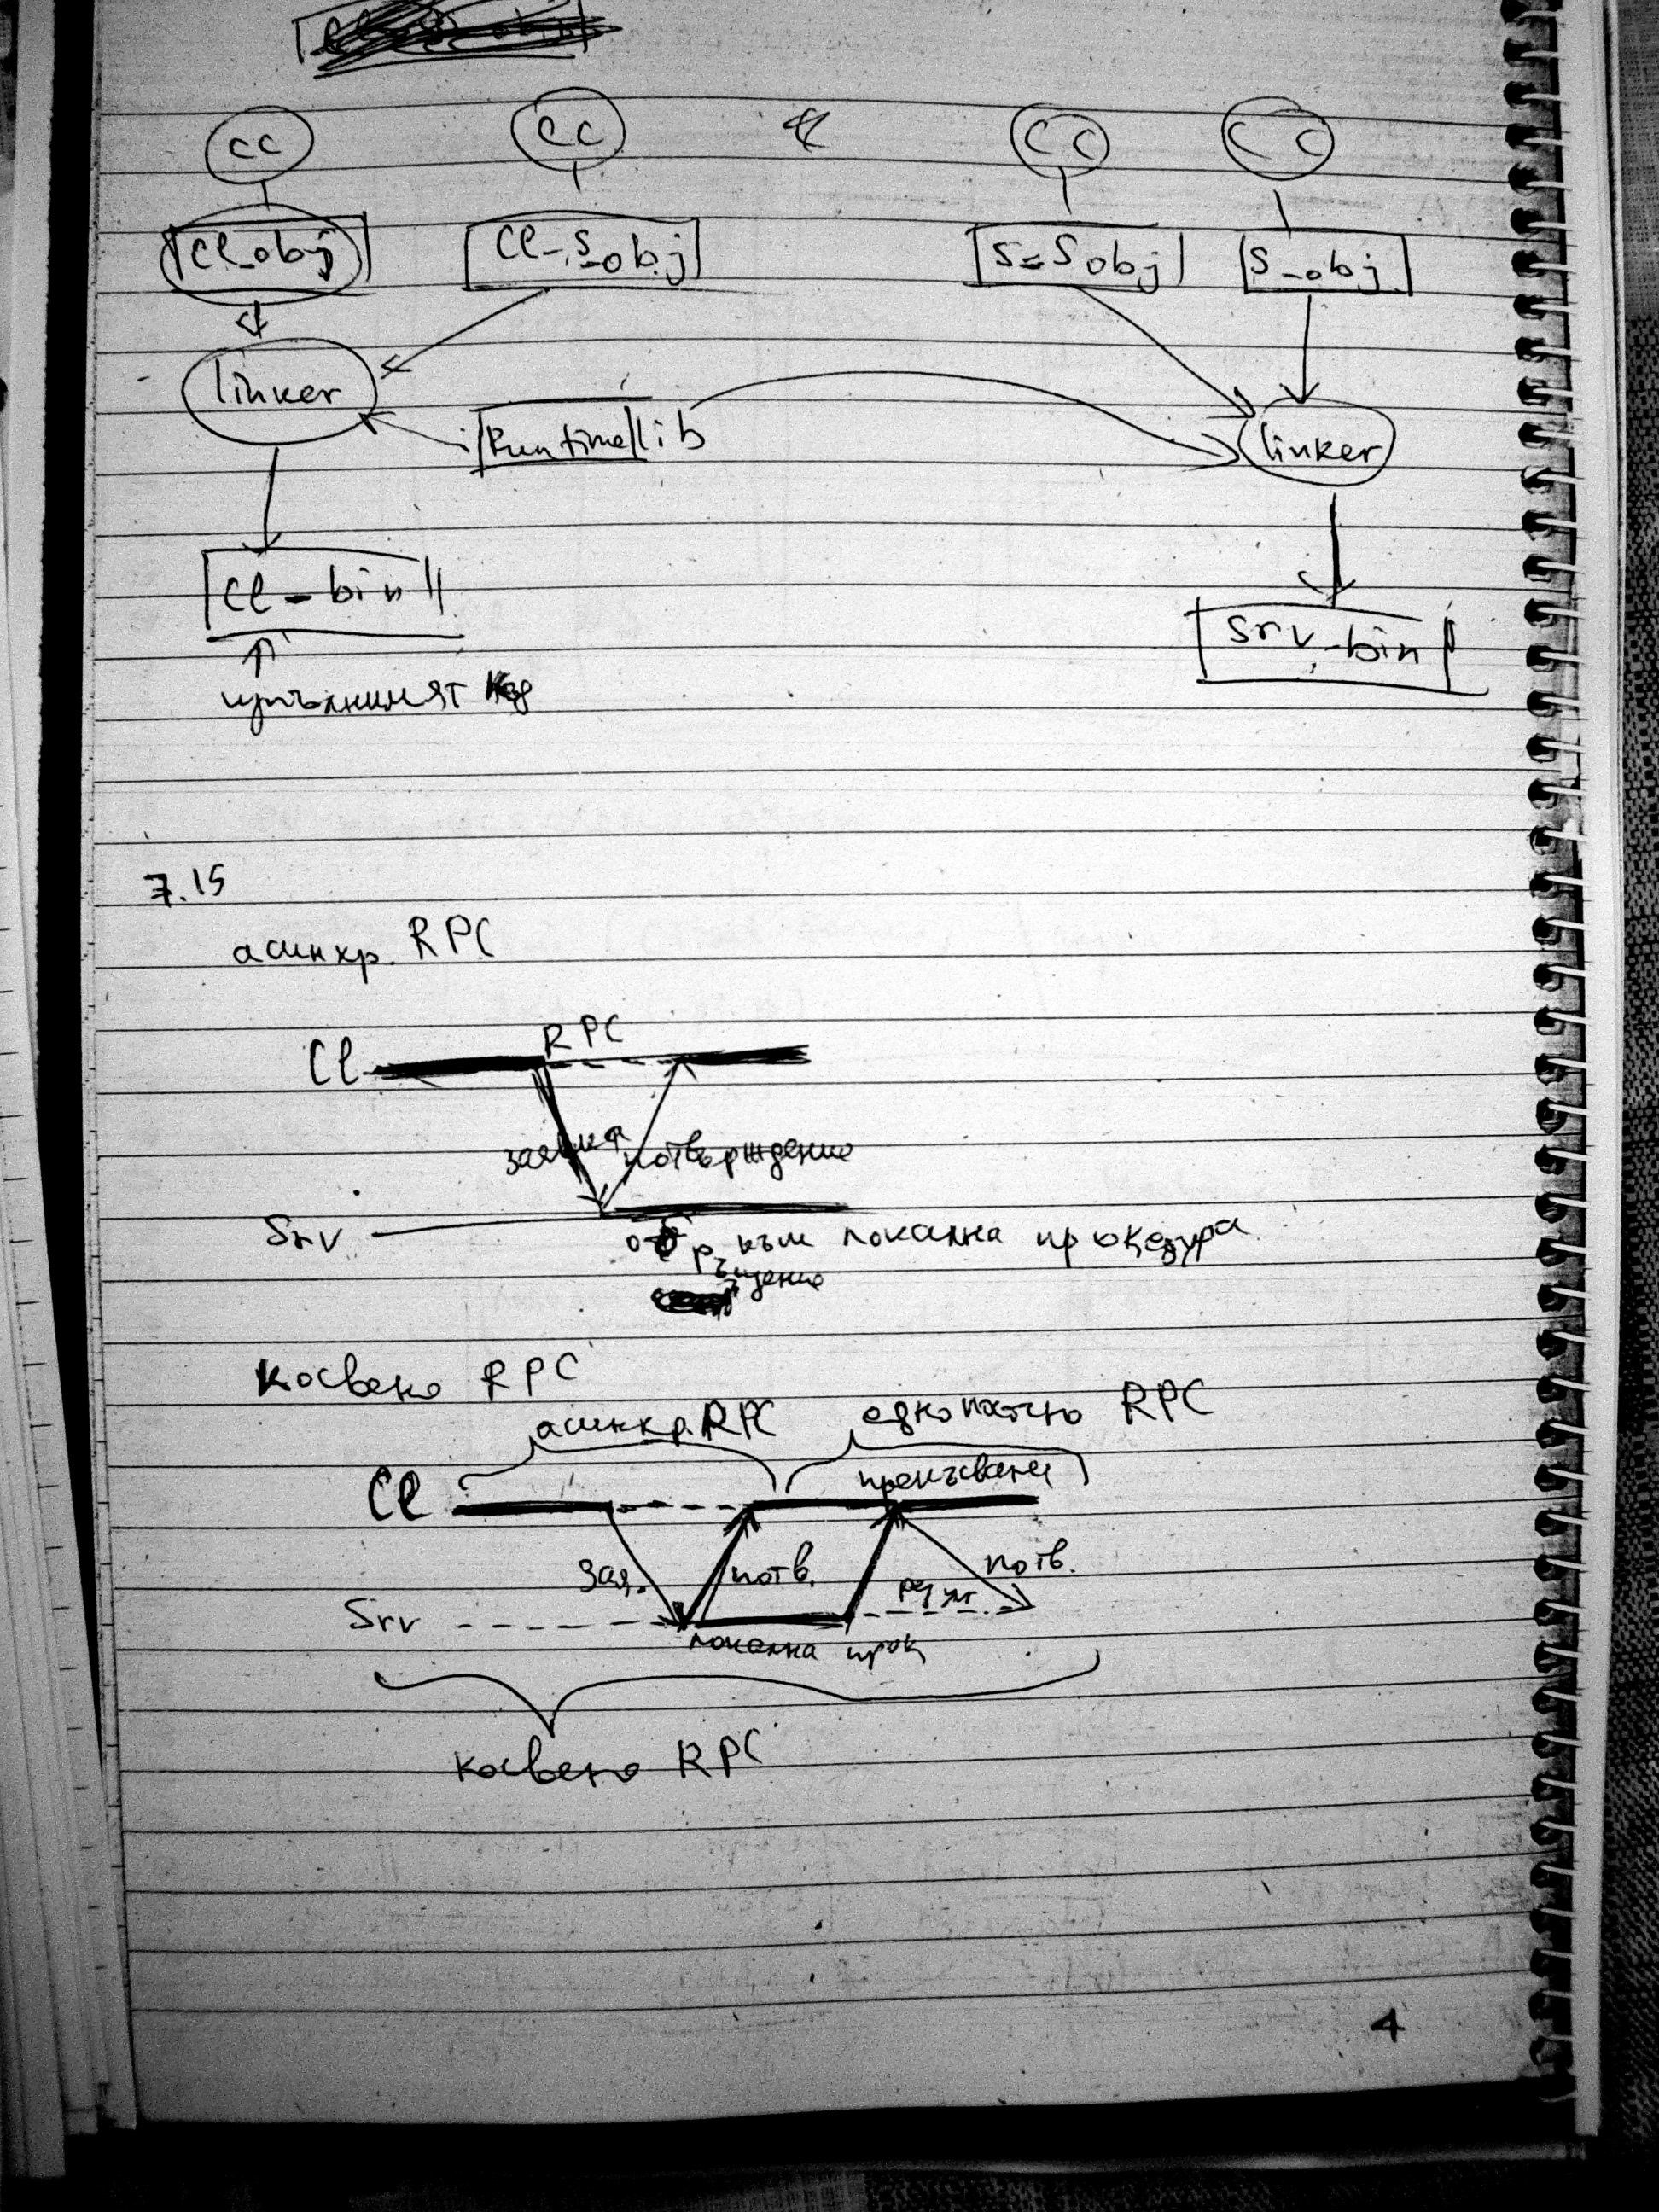 cc cc cc cc
cl_obj cl_s_obj s_sobj s_obj
linker
Runtime lib linker
cl_bin
srv_bin
изпълнимият код
7.15
асинхр. RPC
RPC
Cl
заявка потвърждение
Srv
обръщение към локална процедура
косвено RPC
асинхр. RPC еднопътно RPC
прекъсване
Cl
зая. потв. резулт потв.
Srv
локална проц
косвено RPC
4